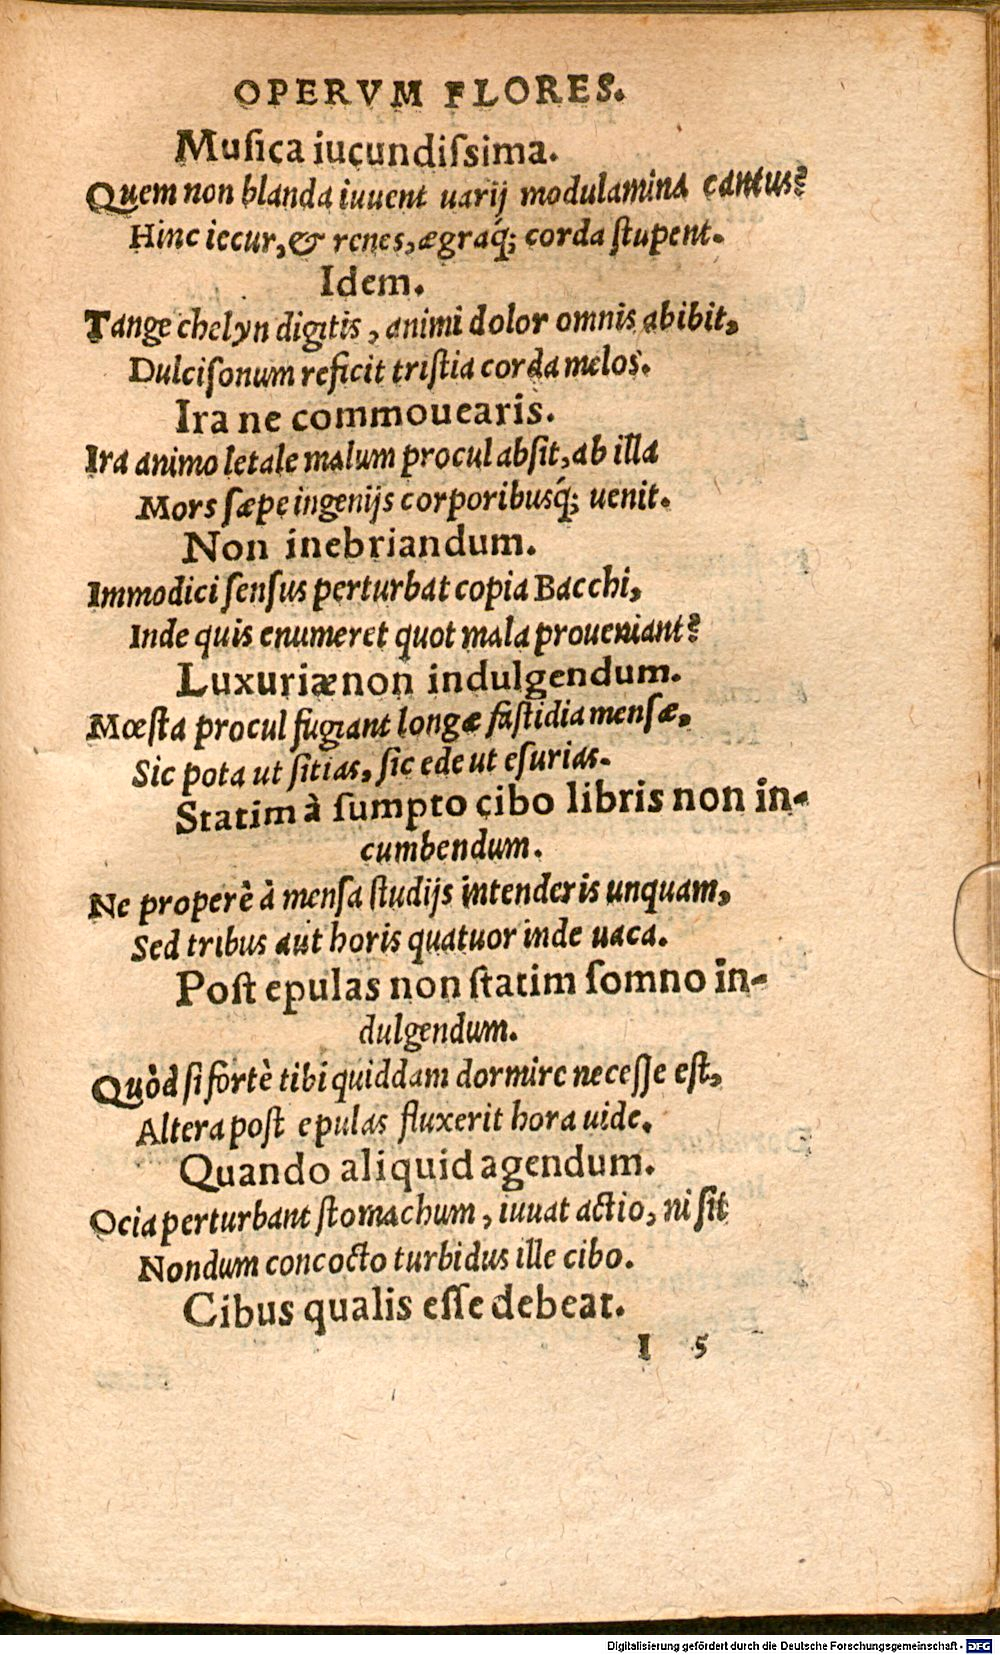 OPERVM FLORES.
Muſica iucundiſsima.
Quem non blanda iuuent uarij modulamina cantus?
Hinc iecur, & renes, ægraq́; corda ſtupent.
Idem.
Tange chelyn digitis, animi dolor omnis abibit,
Dulciſonum reficit triſtia corda melos.
Ira ne commouearis.
Ira animo letale malum procul abſit, ab illa
Mors ſæpe ingenijs corporibusq́; uenit.
Non inebriandum.
Immodici ſenſus perturbat copia Bacchi,
Inde quis enumeret quot mala proueniant?
Luxuriæ non indulgendum.
Mœſta procul fugiant longæ faſtidia menſæ,
Sic pota ut ſitias, ſic ede ut eſurias.
Statim à ſumpto cibo libris non in-
cumbendum.
Ne properè à menſa ſtudijs intenderis unquam,
Sed tribus aut horis quatuor inde uaca.
Poſt epulas non ſtatim ſomno in-
dulgendum.
Quòd ſi fortè tibi quiddam dormire neceſſe eſt,
Altera poſt epulas fluxerit hora uide.
Quando aliquid agendum.
Ocia perturbant ſtomachum, iuuat actio, ni ſit
Nondum concocto turbidus ille cibo.
Cibus qualis eſſe debeat.
I 5
Digitalisierung gefördert durch die Deutsche Forschungsgemeinschaft - DFG